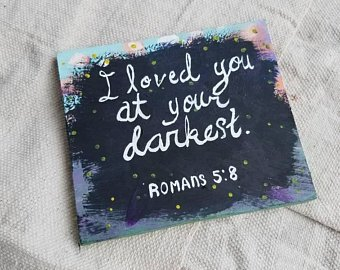 I loved you
at your
darkest.
ROMANS 5:8